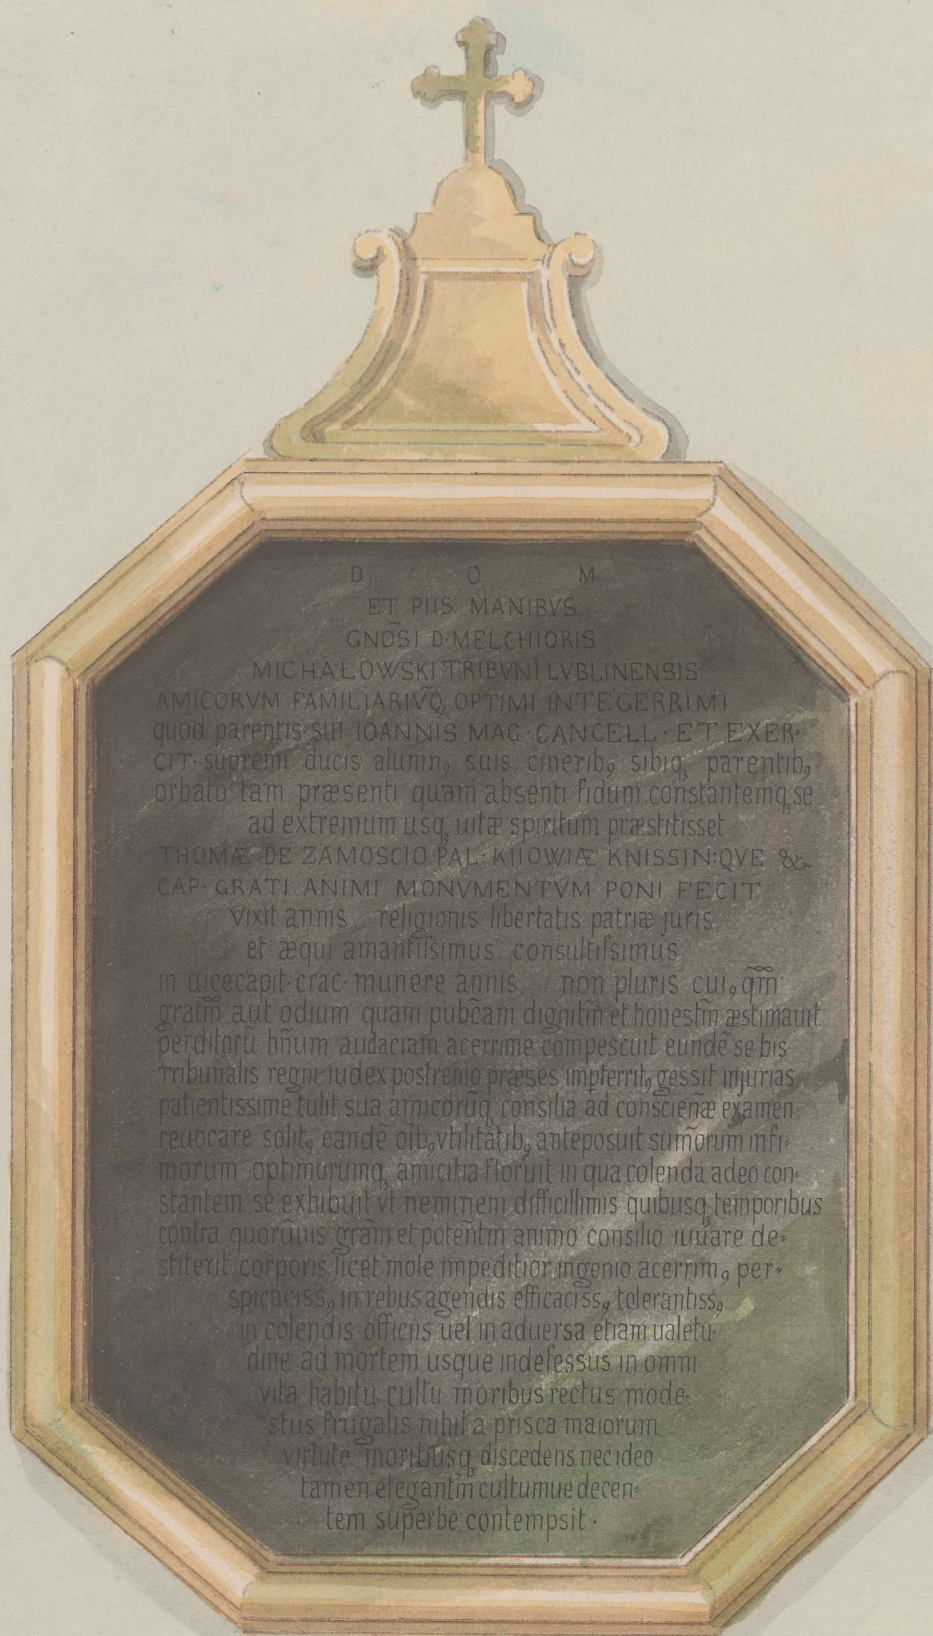 D O M
ET PIIS MANIBVS
GNOS̃I D·MELCHIORIS
MICHAŁOWSKI TRIBVNI LVBLINENSIS
AMICORVM FAMILIARIVQ̃ OPTIMI INTEGERRIMI
quod parentis sui IOANNIS MAG·CANCELL·ET EXER·
CIT·supremi ducis alumnꝯ suis cineribꝯ sibiqꝫ parentibꝯ
orbato tam præsenti quam absenti fidum constantemqꝫ se
ad extremum usqꝫ uitæ spiritum præstitisset
THOMÆ DE ZAMOSCIO PAL·KIIOWIÆ KNISSIN:QVE &
CAP·GRATI ANIMI MONVMENTVM PONI FECIT
vixit annis religionis libertatis patriæ juris
et æqui amantiſsimus consultiſsimus
in uicecapit·crac·munere annis non pluris cuiꝯqm̃
gratm̃ aut odium quam pubc̃am dignitm̃ et honestm̃ æstimauit
perditorũ hñum audaciam acerrime compescuit eundẽ se bis
tribunalis regni iudex postremo præses impterritꝯ gessit injurias
patientissime tulit sua amicorũqꝫ consilia ad conscieñæ examen
reuocare solitꝯ eandẽ oĩbꝯ vtilitãtibꝯ anteposuit sum̃orum infi-
morum optimorumqꝫ amicitia floruit in qua colenda adeo con-
stantem se exhibuit vt neminem difficillimis quibusqꝫ temporibus
contra quorũuis grãm et poteñtm animo consilio iuuare de-
stiterit corporis licet mole impeditior ingenio acerrimꝯ per-
spicacissꝯ in rebus agendis efficacissꝯ tolerantissꝯ
in colendis officiis uel in aduersa etiam ualetu-
dine ad mortem usque indefessus in omni
vita habitu cultu moribus rectus mode-
stus frugalis nihil a prisca maiorum
virtute moribusqꝫ discedens nec ideo
tamen elegantm̃ cultumue decen-
tem superbe contempsit·